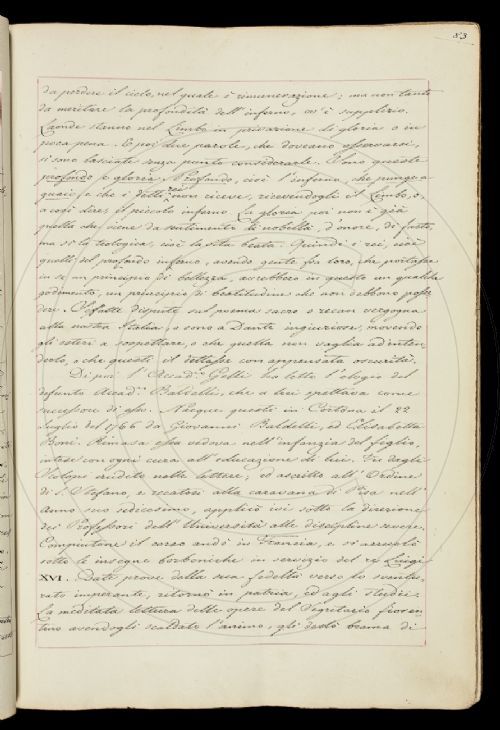 83
da perdere il cielo, nel quale è rimunerazione; ma non tanto
da meritare la profondità dell'inferno, ov'è supplizio.
Laonde stanno nel Limbo in privazione di gloria o in
poca pena. E poi due parole, che doveano osservarsi,
si sono lasciate senza punto considerarle. Sono queste
profondo e gloria. Profondo, cioè l'inferno, che punge a
guai, fa che i detti rei non riceve, ricevendogli il Limbo, o,
a così dire, il piccolo inferno. La gloria poi non è già
quella che viene da sentimento di nobeltà, d'onore, di fasto,
ma sì la teologica, cioè la vita beata. Quindi i rei, cioè
quelli del profondo inferno, avendo gente fra loro, che portasse
in se un principio di bellezza, avrebbero in questo un qualche
godimento, un principio di beatitudine che non debbono posse
dere. Siffatte dispute sul poema sacro o recan vergogna
alla nostra Italia, o sono a Dante ingiuriose, movendo
gli esteri a sospettare, o che questa non vaglia ad inten
derlo, o che questi il dettasse con appensata oscurità.
Di poi l'Accad.co Gelli ha letto l'elogio del
defunto Accad.co Baldelli, che a lui spettava come
successore di esso. Nacque questi in Cortona il 22
Luglio del 1766 da Giovanni Baldelli, ed Elisabetta
Boni. Rimasa essa vedova nell'infanzia del figlio,
intese con ogni cura all'educazione di lui. Fu dagli
Scolopi erudito nelle lettere; ed ascritto all'Ordine
di S. Stefano, e recatosi alla caravana di Pisa nell'
Anno suo sedicesimo, applicò ivi sotto la direzione
dei Professori dell'Università alle discipline severe.
Compiutone il corso andò in Francia, e si arruolò
sotto le insegne borboniche in servizio del re Luigi
XVI. Date prove della sua fedeltà verso lo sventu-
rato imperante, ritornò in patria, ed agli studi:
la meditata lettura delle opere del Segretario fioren
tino avendogli scaldato l'animo, gli destò brama di